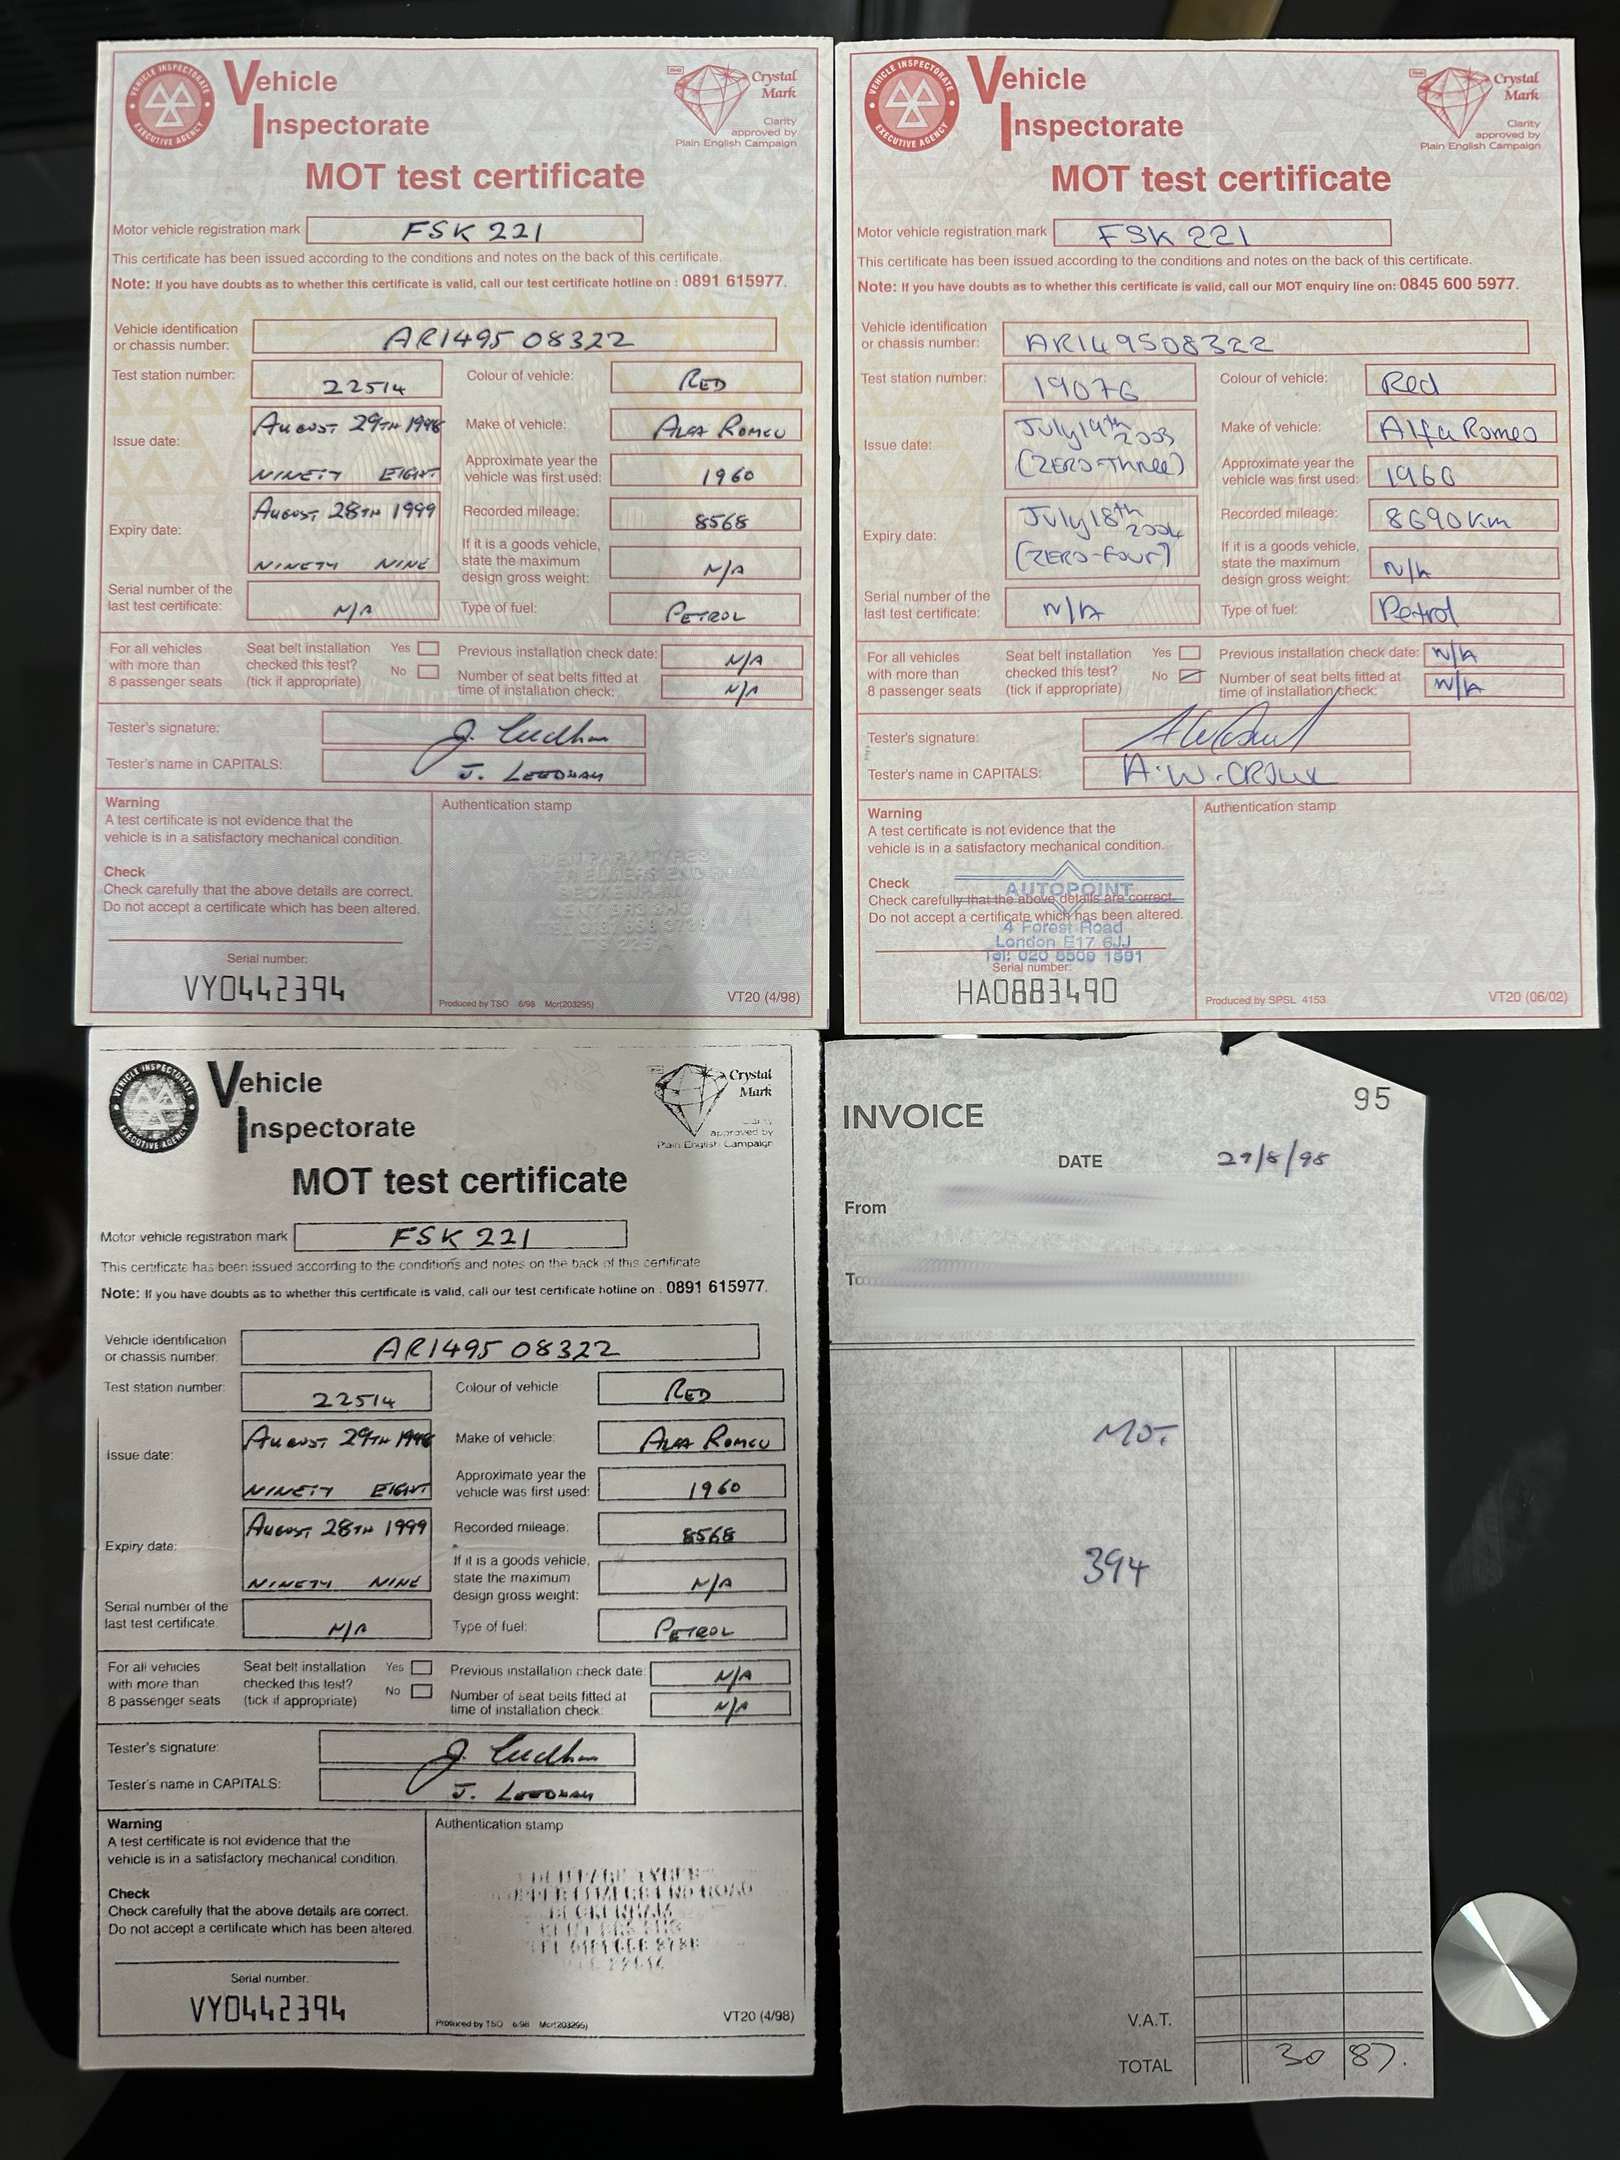 VEHICLE INSPECTORATE
EXECUTIVE AGENCY
Vehicle
Inspectorate
Crystal
Mark
Clarity
approved by
Plain English Campaign
MOT test certificate
Motor vehicle registration mark FSK 221
This certificate has been issued according to the conditions and notes on the back of this certificate.
Note: If you have doubts as to whether this certificate is valid, call our test certificate hotline on : 0891 615977.
Vehicle identification
or chassis number: AR1495 08322
Test station number: 22514
Colour of vehicle: RED
Issue date: AUGUST 29TH 1998
NINETY EIGHT
Make of vehicle: ALFA ROMEO
Approximate year the
vehicle was first used: 1960
Expiry date: AUGUST 28TH 1999
NINETY NINE
Recorded mileage: 8568
If it is a goods vehicle,
state the maximum
design gross weight: N/A
Serial number of the
last test certificate: N/A
Type of fuel: PETROL
For all vehicles
with more than
8 passenger seats
Seat belt installation
checked this test?
(tick if appropriate)
Yes
No
Previous installation check date: N/A
Number of seat belts fitted at
time of installation check: N/A
Tester's signature:
Tester's name in CAPITALS: J.
Warning
A test certificate is not evidence that the
vehicle is in a satisfactory mechanical condition.
Check
Check carefully that the above details are correct.
Do not accept a certificate which has been altered.
Serial number:
VY0442394
Authentication stamp
BECKENHAM
Produced by TSO 6/98 Mcr(203295)
VT20 (4/98)
VEHICLE INSPECTORATE
EXECUTIVE AGENCY
Vehicle
Inspectorate
Crystal
Mark
Clarity
approved by
Plain English Campaign
MOT test certificate
Motor vehicle registration mark FSK 221
This certificate has been issued according to the conditions and notes on the back of this certificate.
Note: If you have doubts as to whether this certificate is valid, call our MOT enquiry line on: 0845 600 5977.
Vehicle identification
or chassis number: AR149508322
Test station number: 19076
Colour of vehicle: Red
Issue date: July 19th 2003
(ZERO-THREE)
Make of vehicle: Alfa Romeo
Approximate year the
vehicle was first used: 1960
Expiry date: July 18th 2004
(ZERO-FOUR)
Recorded mileage: 8690 km
If it is a goods vehicle,
state the maximum
design gross weight: N/A
Serial number of the
last test certificate: N/A
Type of fuel: Petrol
For all vehicles
with more than
8 passenger seats
Seat belt installation
checked this test?
(tick if appropriate)
Yes
No
Previous installation check date: N/A
Number of seat belts fitted at
time of installation check: N/A
Tester's signature:
Tester's name in CAPITALS: A.W.
Warning
A test certificate is not evidence that the
vehicle is in a satisfactory mechanical condition.
Check
Check carefully that the above details are correct.
Do not accept a certificate which has been altered.
AUTOPOINT
4 Forest Road
London E17 6JJ
Tel: 020 8509 1591
Serial number:
HA0883490
Authentication stamp
Produced by SPSL 4153
VT20 (06/02)
VEHICLE INSPECTORATE
EXECUTIVE AGENCY
Vehicle
Inspectorate
Crystal
Mark
approved by
Plain English Campaign
MOT test certificate
Motor vehicle registration mark FSK 221
This certificate has been issued according to the conditions and notes on the back of this certificate
Note: If you have doubts as to whether this certificate is valid, call our test certificate hotline on : 0891 615977.
Vehicle identification
or chassis number: AR1495 08322
Test station number: 22514
Colour of vehicle: RED
Issue date: AUGUST 29TH 1998
NINETY EIGHT
Make of vehicle: ALFA ROMEO
Approximate year the
vehicle was first used: 1960
Expiry date: AUGUST 28TH 1999
NINETY NINE
Recorded mileage: 8568
If it is a goods vehicle,
state the maximum
design gross weight: N/A
Serial number of the
last test certificate. N/A
Type of fuel: PETROL
For all vehicles
with more than
8 passenger seats
Seat belt installation
checked this test?
(tick if appropriate)
Yes
No
Previous installation check date: N/A
Number of seat belts fitted at
time of installation check: N/A
Tester's signature:
Tester's name in CAPITALS: J.
Warning
A test certificate is not evidence that the
vehicle is in a satisfactory mechanical condition.
Check
Check carefully that the above details are correct.
Do not accept a certificate which has been altered.
Serial number:
VY0442394
Authentication stamp
BECKENHAM
Produced by TSO 6/98 Mcr(203295)
VT20 (4/98)
95
INVOICE
DATE 29/8/98
From
To
MOT
394
V.A.T.
TOTAL 30 87.